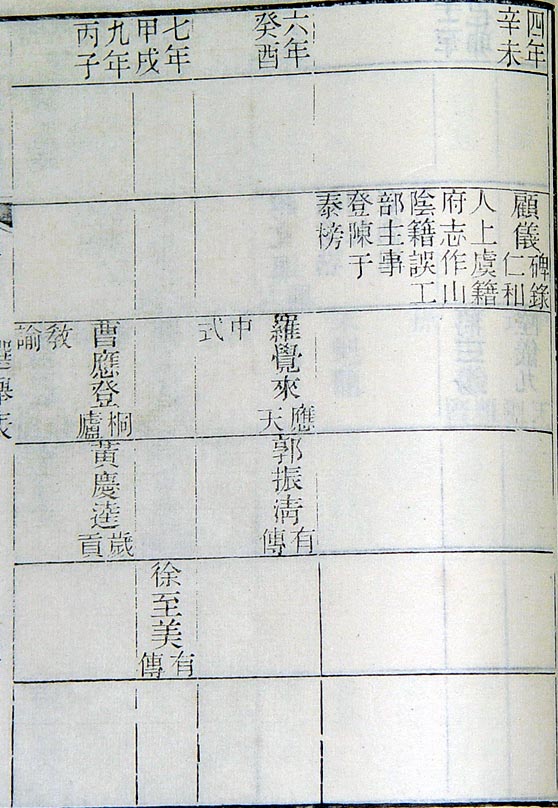 四年
辛未
顧儀
碑錄
仁和
人上虞籍
府志作山
陰籍誤工
部主事
登陳于
泰榜
六年
癸酉
羅覺來
應
天
中
式
郭振清
有
傳
七年
甲戌
徐至美
有
傳
九年
丙子
曹應登
桐
廬
教
諭
黃慶
歲
貢